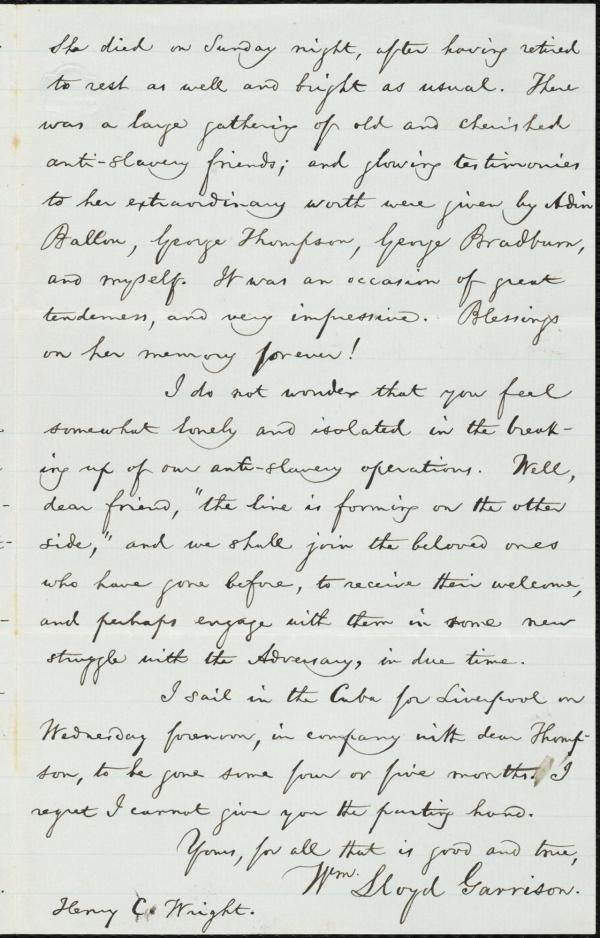 She died on Sunday night, after having retired
to rest as well and bright as usual. There
was a large gathering of old and cherished
anti-slavery friends; and glowing testimonies
to her extraordinary worth were given by Adin
Ballou, George Thompson, George Bradburn,
and myself. It was an occasion of great
tenderness, and very impressive. Blessings
on her memory forever!
I do not wonder that you feel
somewhat lonely and isolated in the break-
ing up of our anti-slavery operations. Well,
dear friend, "the line is forming on the other
side," and we shall join the beloved ones
who have gone before, to receive their welcome,
and perhaps engage with them in some new
struggle with the Adversary, in due time.
I sail in the Cuba for Liverpool on
Wednesday forenoon, in company with dear Thomp-
son, to be gone some four or five months. I
regret I cannot give you the parting hand.
Yours, for all that is good and true,
Wm. Lloyd Garrison.
Henry C. Wright.